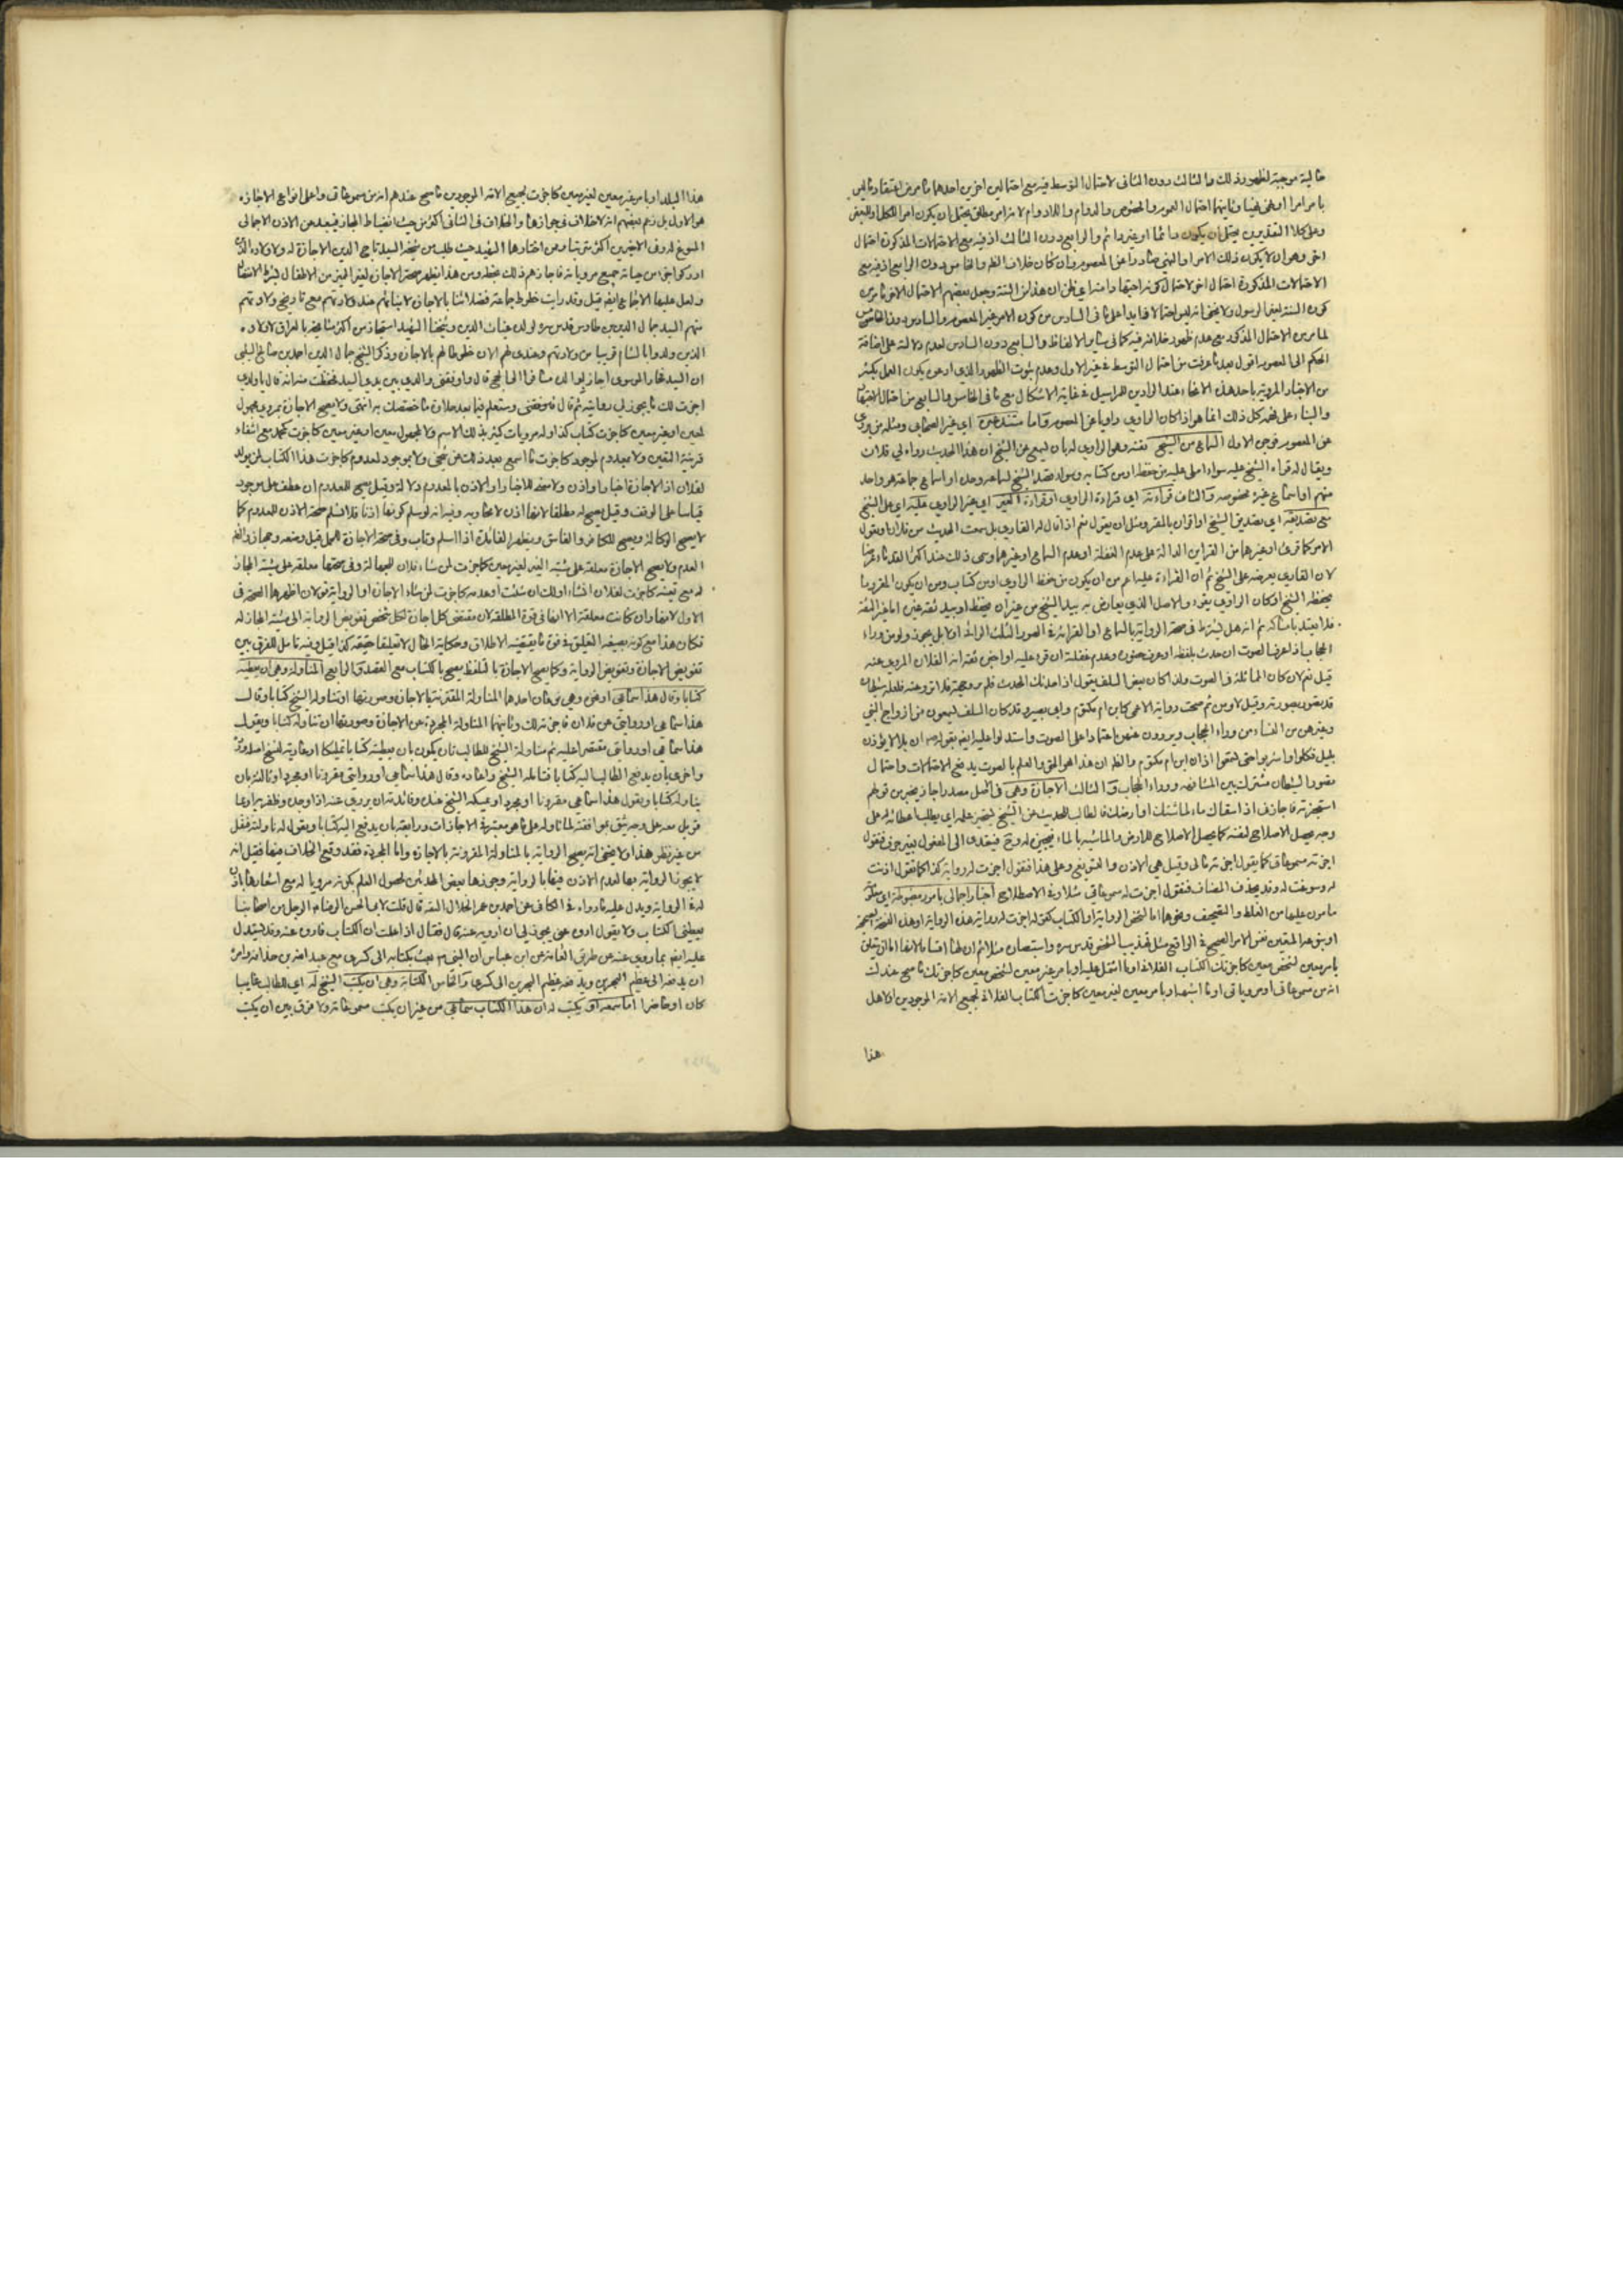 خالية موجبة لظهور ذلك والثالث دون الثانى لاحتمال التوسط فيه مع احتمالين اخرين احدهما
با مرامرا او نهى نهيا وثانيهما احتمال العموم والخصوص والدوام واللادوام لا نرا مر مطلق يحتمل ان يكون امر الكل او البعض
وعلى كلا التقديرين يحتمل ان يكون دائما او غير دائم والرابع دون الثالث اذ فيه مع الاحتمالات المذكورة احتمال
اخر وهو ان لا يكون ذلك الامر او النهى صادرا عن المعصوم وان كان خلاف الظهر والخامس دون الرابع اذ فيه مع
الاحتمالات المذكورة احتمال اخر لاحتمال كونه
كون السنة لغير الرسول ولا يخفى انه ليس احتمالا زايدا على ما فى السادس من كون الامر غير المعصوم والسادس دون الخامس
لما مر من الاحتمال المذكور مع عدم ظهور خلافه فيه كما فى ساير الالفاظ والسابع دون السادس لعدم دلالته على اضافة
الحكم الى المعصوم اقول بعد ما عرفت من احتمال التوسط فى غير الاول وعدم ثبوت الظهور الذى ادعى يكون العمل بكثير
من الاخبار المروية باحد هذه الانحاء عند الرادين للمراسيل فى غاية الاشكال مع ما فى الخامس والسابع من احتمال
والبناء على كل ذلك انما هو اذا كان الراوى راويا عن المعصوم واما مستند غيره اى غير الصحابى ومثله من يروى
عن المعصوم فوجوه الاول السماع من الشيخ نفسه وهو الراوى له بان يسمع من الشيخ ان هذا الحديث رواه لى فلان
ويقال له قراءة الشيخ عليه سواء املى عليه من حفظه او من كتابه وسواء قصد الشيخ اسماعه وحده او اسماع جماعة هو واحد
منهم او اسماع غيره بخصوصه والثانى قراءته اى قراءة الراوى او قراءة الغير اى غير الراوى عليه اى على الشيخ
مع تصديقه اى تصديق الشيخ او اقرانه بالمقروء مثل ان يقول نعم اذا قال له القارى هل سمعت الحديث من فلان او يقول
الامر كما قرئ او غيرهما من القراين الدالة على عدم الغفلة او عدم السماع او غيرهما وسمى ذلك عند اكثر القدماء عرضا
لان القارى يعرضه على الشيخ ثم ان القراءة عليه اعم من ان يكون من حفظ الراوى او من كتاب ومن ان يكون المقروء ما
يحفظه الشيخ او كان الراوى يقرء والاصل الذى يعارض به بيد الشيخ من غير ان يحفظ او بيد ثقة غيره اما غير الثقة
فلا يعتد بامساكه ثم انه هل يشترط فى صحة الرواية بالسماع او القراءة فى الصور الثلث الرائه او لا بل يجوز ولو من وراء
الحجاب اذا عرف الصوت ان حدث بلفظه او عرف حضوره وعدم غفلته ان قرء عليه او اخبر ثقة انه الفلان المروى عنه
قيل نعم لان كان المماثلة فى الصوت ولذا كان بعض السلف يقول اذا حدثك المحدث فلم تر وجهه فلا ترو عنه فلعله شيطان
قد تصور بصورته وقيل لا ومن ثم صحت رواية الاعمى كابن ام مكتوم وابى بصير وقد كان السلف يسمعون من ازواج النبى
وغيرهن من النساء من وراء الحجاب ويروون عنهن اعتمادا على الصوت واستدلوا عليه ايضا بقوله ص ان بلالا يؤذن
بليل فكلوا واشربوا حتى تسمعوا اذان ابن ام مكتوم والظ ان هذا هو الحق والعلم بالصوت يدفع الاحتمالات واحتمال
تصور الشيطان مشترك بين المشافهه ووراء الحجاب والثالث الاجازة وهى فى الاصل مصدر اجاز يجيز من قولهم
استجزته فاجازنى اذا سقاك ماء لماشيتك او ارضك فالطالب للحديث من الشيخ يستجيز علمه اى يطلب اعطائه له على
وجه يحصل الاصلاح لنفسه كما يحصل الاصلاح للارض والماشية بالماء فيجيزه له وح فيتعدى الى المفعول بغير حرف فتقول
اجزته مسموعاتى كما يقول اجزته مالى وقيل هى الاذن والتسويغ وعلى هذا فتقول اجزت له رواية كذا كما تقول اذنت
له وسوغت له وقد يحذف المضاف فتقول اجزت له مسموعاتى مثلا وفى الاصطلاح اخبار اجمالى بامور مضبوطة اى معلومة
مامون عليها من الغلط والتصحيف ونحوهما اما لشخص الرواية او الكتاب كقوله اجزت له رواية هذه الرواية او هذه النسخة المصححة
او بنوعه المتعين نفس الامر الصحيح فى الواقع مثل تهذيب الشيخ قدس سره واستبصاره مثلا ثم ان لها اقساما لانها اما ان يتعلق
بامر معين لشخص معين كاجزتك الكتاب الفلانى او ما اشتمل عليه او بامر غير معين لشخص معين كاجزتك ما صح عندك
انه من مسموعاتى او مروياتى او ما اشبهه او بامر معين لغير معين كاجزت الكتاب الفلانى لجميع الامة الموجودين او لاهل
هذا
هذا البلد او بامر غير معين لغير معين كاجزت لجميع الامة الموجودين ما صح عندهم انه من مسموعاتى واعلى انواع الاجازة
هو الاول بل زعم بعضهم انه لا خلاف فى جوازها والخلاف فى الثانى اكثر من حيث انضباط المجاز فيبعد عن الاذن الاجمالى
المسوغ له وفى الاخيرين اكثر من اختارها الشهيد حيث طلب من شيخه السيد تاج الدين الاجازة له ولاولاده
ادركوا جزء من حياته جميع مروياته فاجازهم ذلك بخطه ومن هذا يظهر صحة الاجازة لغير المميز من الاطفال
ولعل عليها الاجماع ايضا قيل وقد رايت خطوط جماعة فضلائنا بالاجازة لابنائهم عند ولادتهم مع تاريخ ولادتهم
منهم السيد جمال الدين بن طاوس قدس سره لولده غياث الدين وشيخنا الشهيد استجاز من اكثر مشايخه بالعراق لاولاده
الذين ولدوا بالشام قريبا من ولادتهم وعندى لهم الان خطوطهم بالاجازة وذكر الشيخ جمال الدين احمد بن صالح السيبى
ان السيد فخار الموسوى اجتاز بوالده مسافرا الى الحج قال فاوقفنى والدى بين يدى السيد فحفظت منه انه قال يا ولدى
اجزت لك ما يجوز لى روايته ثم قال وستعلم فيما بعد حلاوة ما خصصتك به انتهى ولا يصح الاجازة بمروى مجهول
لمعين او غير معين كاجزت كتاب كذا وله مرويات كثيرة بذلك الاسم ولا لمجهول معين او غير معين كاجزت لمحمد مع انتفاء
قرينة التعيين ولا بمعدوم لموجود كاجزت ما اسمع بعد ذلك من شيخى ولا بموجود لمعدوم كاجزت هذا الكتاب لمن يولد
لفلان اذ الاجازة اخبار او اذن ولا معنى للاخبار او الاذن بالمعدوم ولا له وقيل يصح للمعدوم ان عطف على موجود
قياسا على الوقف وقيل يصح له مطلقا لانها اذن لا محادثة وفيه انه لو سلم كونها اذنا فلا نسلم صحة الاذن للمعدوم كما
لا يصح الوكالة ويصح للكافر والفاسق ويظهر الفائدة اذا اسلم وتاب وفى صحة الاجازة للحمل قيل ومنعه وجهان
العدم ولا يصح الاجازة معلقة على مشية الغير لغير معين كاجزت لمن شاء فلان للجهالة وفى صحتها معلقة على مشية المجاز
له مع تعينه كاجزت لفلان ان شاء او لك ان شئت او عدمه كاجزت لمن شاء الاجازة او الرواية قولان اظهرهما الصحة فى
الاول لانها وان كانت معلقة الا انها فى قوة المطلقة لان مقتضى كل اجازة لكل شخص تفويض الرواية الى مشية المجاز له
فكان هذا مع كونه بصيغة التعليق فى قوة ما يقتضيه الاطلاق وحكاية الحال لا تعليقا حقيقة كذا قيل وفيه تامل للفرق بين
تفويض الاجازة وتفويض الرواية وكما يصح الاجازة باللفظ يصح بالكتاب مع القصد والرابع المناولة وهى ان يعطيه
كتابا وقال هذا سماعى اروه عنى وهى نوعان احدهما المناولة المقترنة بالاجازة وصورتها ان يناوله الشيخ كتابا وقال
هذا سماعى او روايتى عن فلان فاجزته لك وثانيهما المناولة المجردة عن الاجازة وصورتها ان يناوله كتابا ويقول
هذا سماعى او روايتى مقتصرا عليه ثم مناولة الشيخ للطالب تارة يكون بان يعطيه كتابا تمليكا او عارية لنسخ اصله
واخرى بان يدفع الطالب اليه كتابا فتامله الشيخ واعاده وقال هذا سماعى او روايتى مقرونا او مجردا وثالثة بان
يناوله كتابا ويقول هذا سماعى مقرونا او مجردا ويمسكه الشيخ عنده وفائدته ان يروى عنه اذا وجده وظفر به او بما
قوبل معه على وجه يثق بموافقته لما تناوله على ما هو معتبر فى الاجازات ورابعة بان يدفع اليه كتابا ويقول له ناولنيه ففعل
من غير نظر هذا ولا يخفى انه يصح الرواية بالمناولة المقرونة بالاجازة واما المجردة فقد وقع الخلاف فيها فقيل انه
لا يجوز الرواية بها لعدم الاذن فيها بالرواية وجوزها بعض المحدثين لحصول العلم بكونه مرويا له مع اشعارها باذن
له فى الرواية ويدل عليه ما رواه فى الكافى عن احمد بن عمر الحلال انه قال قلت لابى الحسن الرضا ع الرجل من اصحابنا
يعطينى الكتاب ولا يقول اروه عنى يجوز لى ان ارويه عنه قال فقال اذا علمت ان الكتاب فاروه عنه وقد يستدل
عليه ايضا بما روى عنه عن طريق العامة عن ابن عباس ان النبى ص بعث بكتابه الى كسرى مع عبد الله بن حذافة وامره
ان يدفعه الى عظيم البحرين ويدفعه عظيم البحرين الى كسرى والخامس الكتابة وهى ان يكتب الشيخ له اى للطالب غايبا
كان او حاضرا اما سمعه او يكتب له ان هذا الكتاب سماعى من غير ان يكتب مسموعاته ولا فرق بين ان يكتب